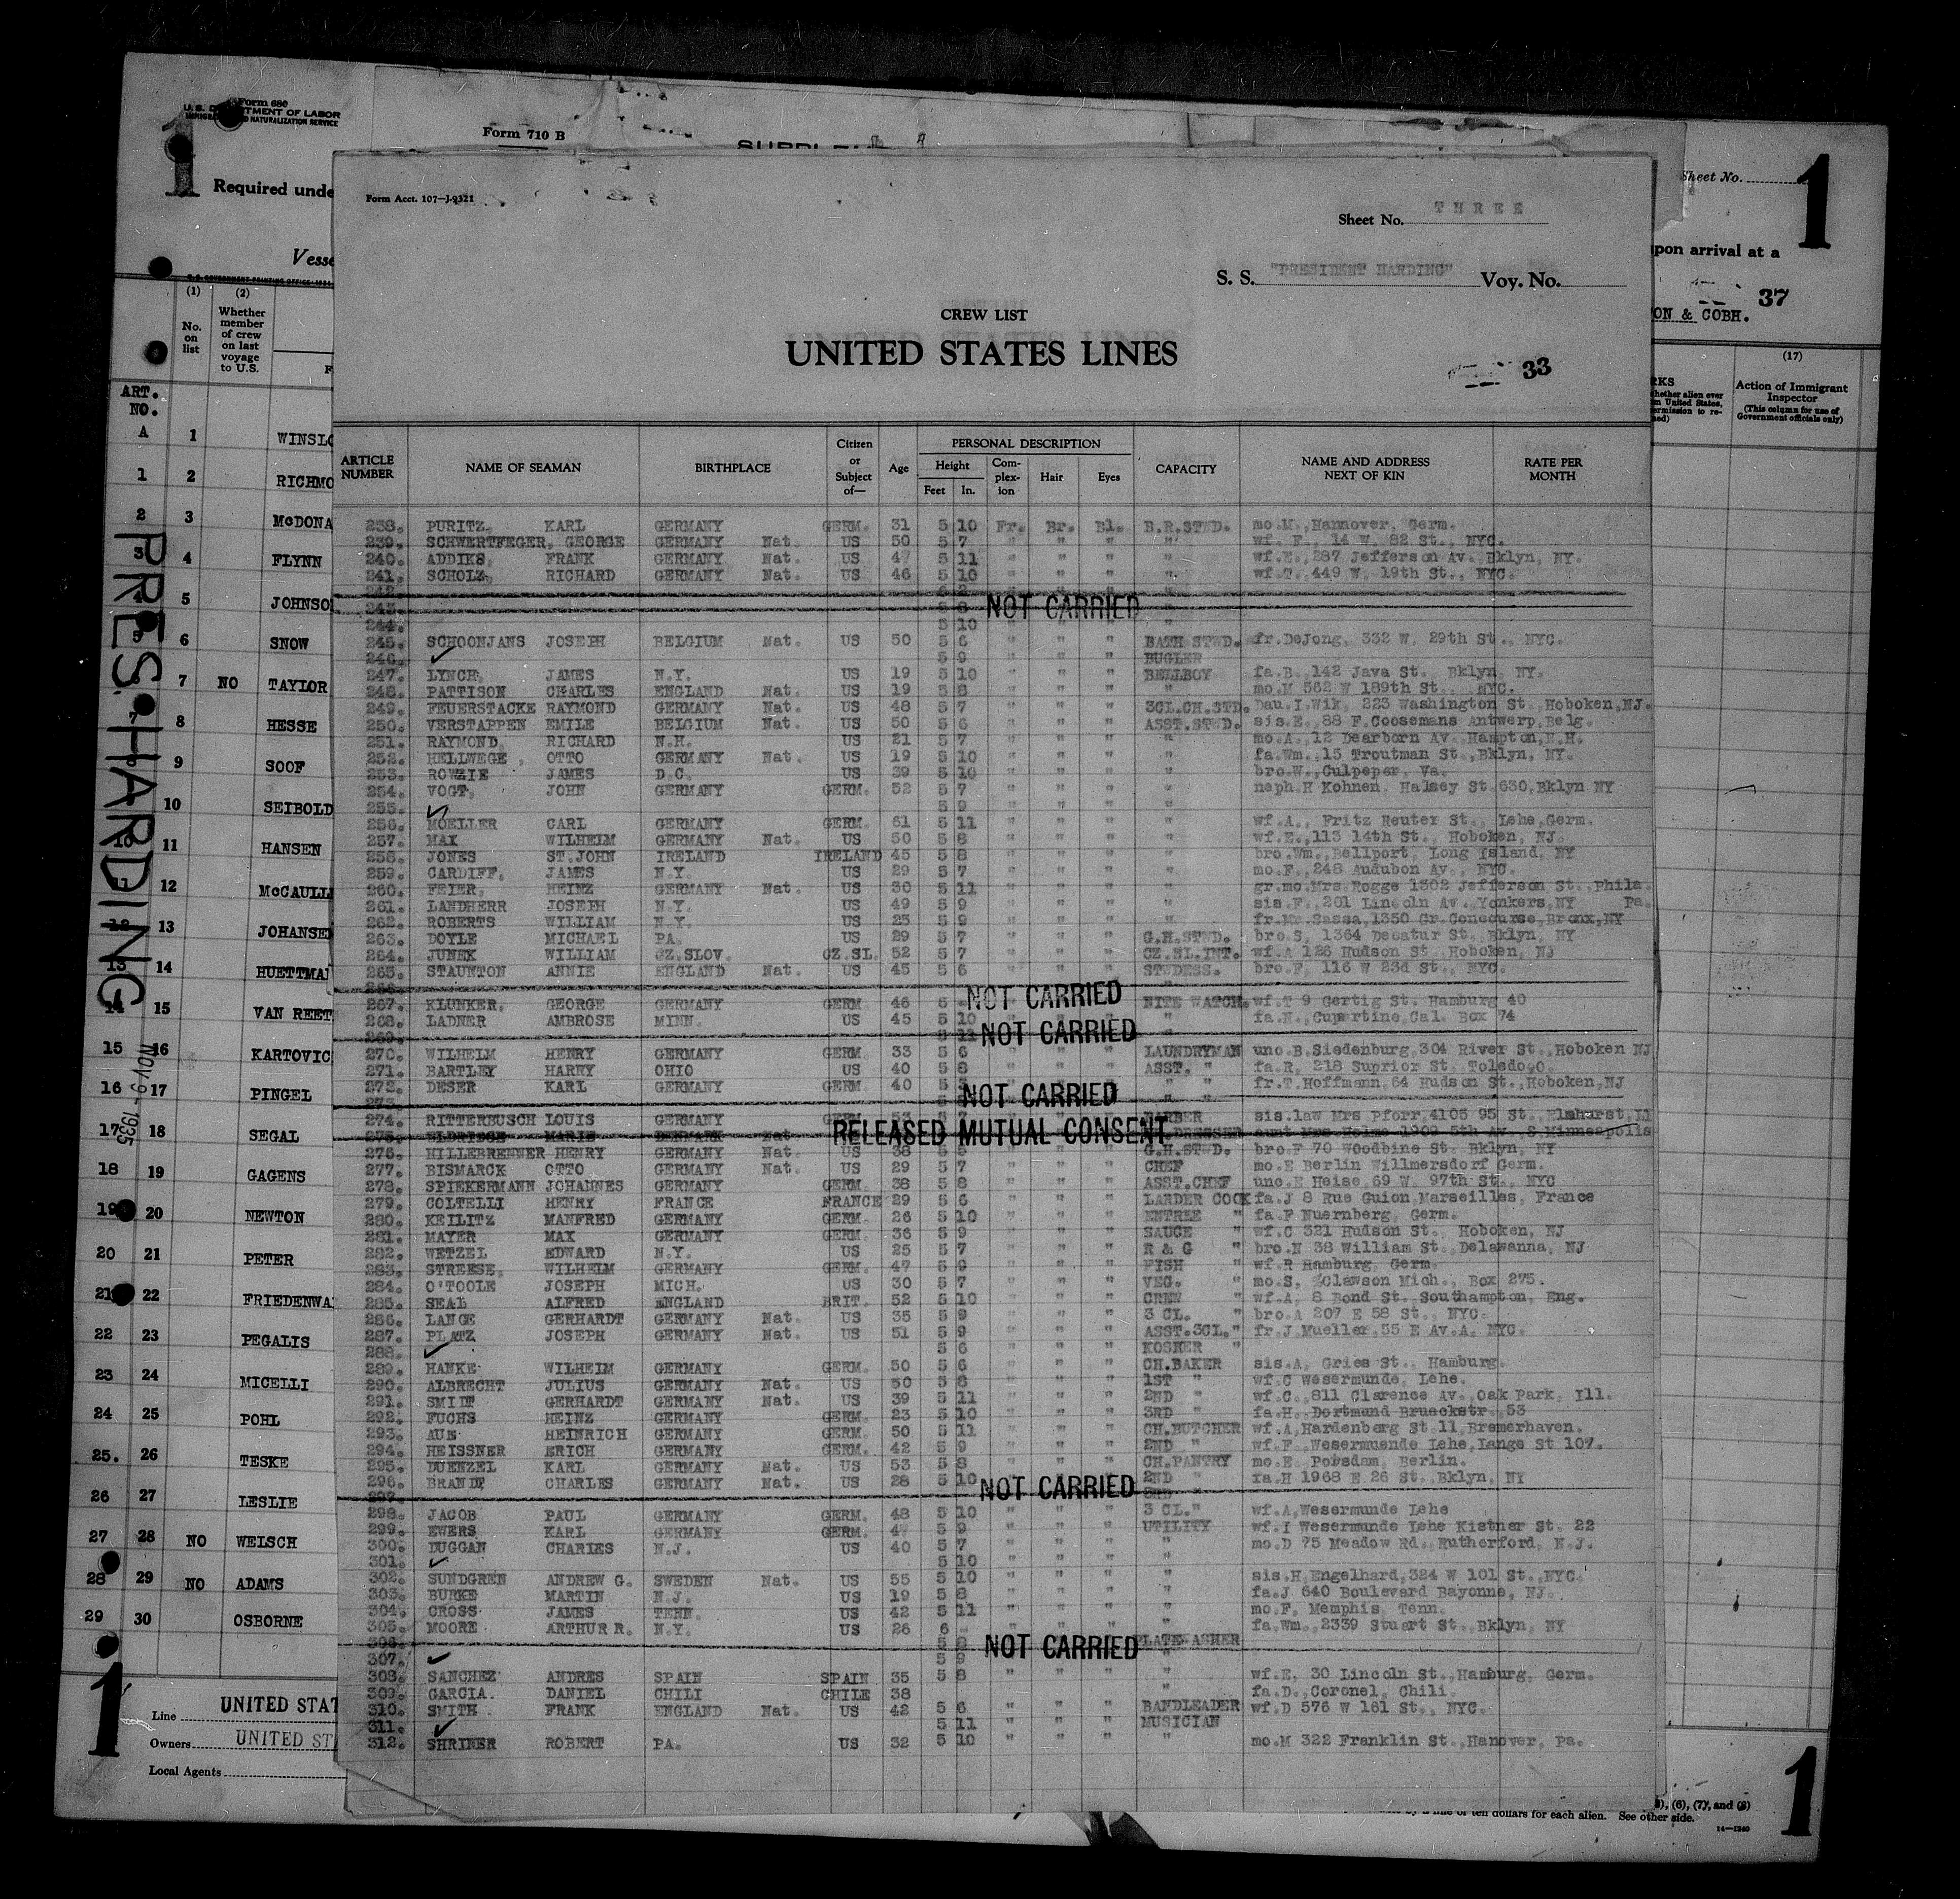 Form 680
U. S. DEPARTMENT OF LABOR
IMMIGRATION AND NATURALIZATION SERVICE
1
Required unde
Vesse
(1) (2)
No. on list
Whether member of crew on last voyage to U.S.
ART. NO.
A 1 WINSLO
1 2 RICHMO
2 3 McDONA
3 4 FLYNN
5 JOHNSO
6 SNOW
7 NO TAYLOR
8 HESSE
9 SOOF
10 SEIBOLD
10 11 HANSEN
12 McCAULL
12 13 JOHANSE
13 14 HUETTMA
14 15 VAN REET
15 16 KARTOVIC
16 17 PINGEL
17 18 SEGAL
18 19 GAGENS
19 20 NEWTON
20 21 PETER
21 22 FRIEDENWA
22 23 PEGALIS
23 24 MICELLI
24 25 POHL
25. 26 TESKE
26 27 LESLIE
27 28 NO WELSCH
28 29 NO ADAMS
29 30 OSBORNE
PRES. HARDING
NOV 9- 1935
1
Line UNITED STAT
Owners UNITED ST
Local Agents
Form 710 B
Form Acct. 107-J-9321
Sheet No. THREE
S. S. "PRESIDENT HARDING" Voy. No.
CREW LIST
UNITED STATES LINES
33
ARTICLE NUMBER NAME OF SEAMAN BIRTHPLACE Citizen or Subject of— Age PERSONAL DESCRIPTION Height Feet In. Complexion Hair Eyes CAPACITY NAME AND ADDRESS NEXT OF KIN RATE PER MONTH
238. PURITZ, KARL GERMANY GERM. 31 5 10 Fr. Br. Bl. B.R.STWD. mo.M.,Hannover, Germ.
239. SCHWERTFEGER, GEORGE GERMANY Nat. US 50 5 7 " " " " wf. F., 14 W. 82 St., NYC.
240. ADDIKS, FRANK GERMANY Nat. US 47 5 11 " " " " wf.E.,287 Jefferson Av. Bklyn, NY.
241. SCHOLZ, RICHARD GERMANY Nat. US 46 5 10 " " " " wf.T. 449 W. 19th St., NYC.
242.
243. 5 8 NOT CARRIED
244. 5 10
245. SCHOONJANS JOSEPH BELGIUM Nat. US 50 5 6 " " " BATH STWD. fr.DeJong, 332 W. 29th St., NYC.
246. 5 9 " " " BUGLER
247. LYNCH, JAMES N.Y. US 19 5 10 " " " BELLBOY fa.B., 142 Java St. Bklyn, NY.
248. PATTISON CHARLES ENGLAND Nat. US 19 5 8 " " " " mo.M 562 W 189th St., NYC.
249. FEUERSTACKE RAYMOND GERMANY Nat. US 48 5 7 " " " 3CL.CH.STD. Dau.I.Wik, 223 Washington St. Hoboken,NJ.
250. VERSTAPPEN EMILE BELGIUM Nat. US 50 5 6 " " " ASST.STWD. sis.E., 88 F.Coosemans Antwerp,Belg.
251. RAYMOND, RICHARD N.H. US 21 5 7 " " " " mo.A., 12 Dearborn Av. Hampton,N.H.
252. HELLWEGE, OTTO GERMANY Nat. US 19 5 10 " " " " fa.Wm., 15 Troutman St.,Bklyn, NY.
253. ROWZIE JAMES D.C. US 39 5 10 " " " " bro.W.,Culpeper, Va.
254. VOGT, JOHN GERMANY GERM. 52 5 7 " " " " neph.H Kohnen, Halsey St.630,Bklyn NY
255. 5 9 " " " "
256. MOELLER CARL GERMANY GERM. 61 5 11 " " " " wf.A., Fritz Reuter St., Lehe,Germ.
257. MAX WILHELM GERMANY Nat. US 50 5 8 " " " " wf.E.,113 14th St., Hoboken, NJ.
258. JONES ST.JOHN IRELAND IRELAND 45 5 8 " " " " bro.Wm.,Bellport, Long Island, NY
259. CARDIFF, JAMES N.Y. US 29 5 7 " " " " mo.F.,248 Audubon Av., NYC.
260. FEIER, HEINZ GERMANY Nat. US 30 5 11 " " " " gr.mo.Mrs.Rogge 1302 Jefferson St. Phila. Pa.
261. LANDHERR JOSEPH N.Y. US 49 5 9 " " " " sis.F. 201 Lincoln Av. Yonkers,NY
262. ROBERTS WILLIAM N.Y. US 25 5 9 " " " " fr.Mr.Sassa,1350 Gr.Concourse,Bronx,NY
263. DOYLE MICHAEL PA. US 29 5 7 " " " G.H.STWD. bro.S, 1364 Decatur St. Bklyn, NY
264. JUNEK WILLIAM CZ.SLOV. CZ.SL. 52 5 7 " " " CZ.SL.INT. wf.A 126 Hudson St. Hoboken, NJ
265. STAUNTON ANNIE ENGLAND Nat. US 45 5 6 " " " STWDESS. bro.F, 116 W 23d St., NYC.
266. NOT CARRIED
267. KLUNKER, GEORGE GERMANY GERM. 46 NITE WATCH. wf.T 9 Gertig St. Hamburg 40
268. LADNER AMBROSE MINN. US 45 5 10 " fa.N.,Cupertine,Cal. Box 74
269. NOT CARRIED
270. WILHELM HENRY GERMANY GERM. 33 5 6 " " " LAUNDRYMAN unc.B.Siedenburg,304 River St.,Hoboken NJ
271. BARTLEY HARRY OHIO US 40 5 8 " " " ASST. " fa.R, 218 Suprior St. Toledo,O.
272. DESER KARL GERMANY GERM. 40 " " fr.T.Hoffmann,64 Hudson St.,Hoboken,NJ
273. NOT CARRIED
274. RITTERBUSCH LOUIS GERMANY GERM. 53 5 7 BARBER sis.law Mrs Pforr,4105 95 St., Elmhurst,LI
275. ELDRIEGE MARIE DENMARK Nat. RELEASED MUTUAL CONSENT DRESSER aunt Mrs Holme 1909 5th Av. S.Minneapolis
276. HILLEBRENNER HENRY GERMANY Nat. US 38 5 5 " " " G.H.STWD. bro.F 70 Woodbine St. Bklyn, NY
277. BISMARCK OTTO GERMANY Nat. US 29 5 7 " " " CHEF mo.E Berlin Willmersdorf Germ.
278. SPIEKERMANN JOHANNES GERMANY GERM. 38 5 8 " " " ASST.CHEF unc.E Heise,69 W. 97th St., NYC
279. COLTELLI HENRY FRANCE FRANCE 29 5 6 " " " LARDER COOK fa.J 8 Rue Guion,Marseilles, France
280. KEILITZ MANFRED GERMANY GERM. 26 5 10 " " " ENTREE " fa.F Nuernberg, Germ.
281. MAYER MAX GERMANY GERM. 36 5 9 " " " SAUCE " wf.C 321 Hudson St., Hoboken, NJ
282. WETZEL EDWARD N.Y. US 25 5 7 " " " R & G " bro.N 38 William St. Delawanna, NJ
283. STREESE, WILHELM GERMANY GERM. 47 5 9 " " " FISH " wf.R Hamburg, Germ.
284. O'TOOLE JOSEPH MICH. US 30 5 7 " " " VEG. " mo.S, %Clawson Mich., Box 275.
285. SEAL ALFRED ENGLAND BRIT. 52 5 10 " " " CREW " wf.A, 8 Bond St. Southampton, Eng.
286. LANGE GERHARDT GERMANY Nat. US 35 5 9 " " " 3 CL. " bro.A 207 E 58 St., NYC.
287. PLATZ JOSEPH GERMANY Nat. US 51 5 9 " " " ASST.3CL." fr.J Mueller,55 E Av.A, NYC.
288. 5 6 " " " KOSHER "
289. HANKE WILHELM GERMANY GERM. 50 5 6 " " " CH.BAKER sis.A, Gries St., Hamburg.
290. ALBRECHT JULIUS GERMANY Nat. US 50 5 8 " " " 1ST " wf.C Wesermunde, Lehe.
291. SMIDT GERHARDT GERMANY Nat. US 39 5 11 " " " 2ND " wf.C.,811 Clarence Av.,Oak Park, Ill.
292. FUCHS HEINZ GERMANY GERM. 23 5 10 " " " 3RD " fa.H., Dortmund Brueckstr. 53
293. AUE HEINRICH GERMANY GERM. 50 5 11 " " " CH.BUTCHER wf.A,Hardenberg St.11,Bremerhaven.
294. HEISSNER ERICH GERMANY GERM. 42 5 9 " " " 2ND " wf.F. Wesermuende Lehe,Lange St 107.
295. DUENZEL KARL GERMANY Nat. US 53 5 8 " " " CH.PANTRY mo.E, Potsdam, Berlin.
296. BRANDT CHARLES GERMANY Nat. US 28 5 10 2ND " fa.H 1968 E 26 St., Bklyn, NY
297. NOT CARRIED 3RD "
298. JACOB PAUL GERMANY GERM. 48 5 10 " " " 3 CL." wf.A,Wesermunde Lehe
299. EWERS KARL GERMANY GERM. 47 5 9 " " " UTILITY wf.I Wesermunde Lehe Kistner St. 22
300. DUGGAN CHARLES N.J. US 40 5 7 " " " " mo.D 75 Meadow Rd. Rutherford, N.J.
301. 5 10 " " " "
302. SUNDGREN ANDREW G. SWEDEN Nat. US 55 5 10 " " " " sis.H,Engelhard,324 W 101 St.,NYC.
303. BURKE MARTIN N.J. US 19 5 8 " " " " fa.J 640 Boulevard Bayonne, NJ.
304. CROSS JAMES TENN. US 42 5 11 " " " " mo.F, Memphis, Tenn.
305. MOORE ARTHUR R. N.Y. US 26 6 - " " " " fa.Wm., 2339 Stuart St.,Bklyn, NY
306. 5 8 NOT CARRIED PLATEWASHER
307. 5 9 "
308. SANCHEZ ANDRES SPAIN SPAIN 35 5 8 " " " " wf.E, 30 Lincoln St.,Hamburg, Germ.
309. GARCIA. DANIEL CHILI CHILE 38 " fa.D.,Coronel, Chili.
310. SMITH FRANK ENGLAND Nat. US 42 5 6 " " " BANDLEADER wf.D 576 W 161 St., NYC.
311. 5 11 " " " MUSICIAN
312. SHRINER ROBERT PA. US 32 5 10 " " " " mo.M 322 Franklin St.,Hanover, Pa.
Sheet No.
1
upon arrival at a
37
ON & COBH.
(17)
Action of Immigrant Inspector
(This column for use of Government officials only)
), (6), (7), and (8)
ten dollars for each alien. See other side.
14—1240
1